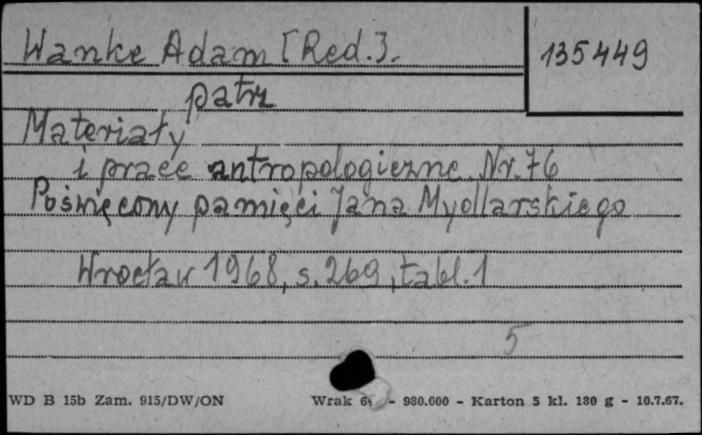 Wanke Adam [Red.].
135449
patrz
Materiały
i prace antropologiczne. Nr. 76
Poświęcony pamięci Jana Mydlarskiego
Wrocław 1968, s. 269, tabl. 1
5
WD B 15b Zam. 915/DW/ON
Wrak - 980.000 - Karton 5 kl. 180 g - 10.7.67.